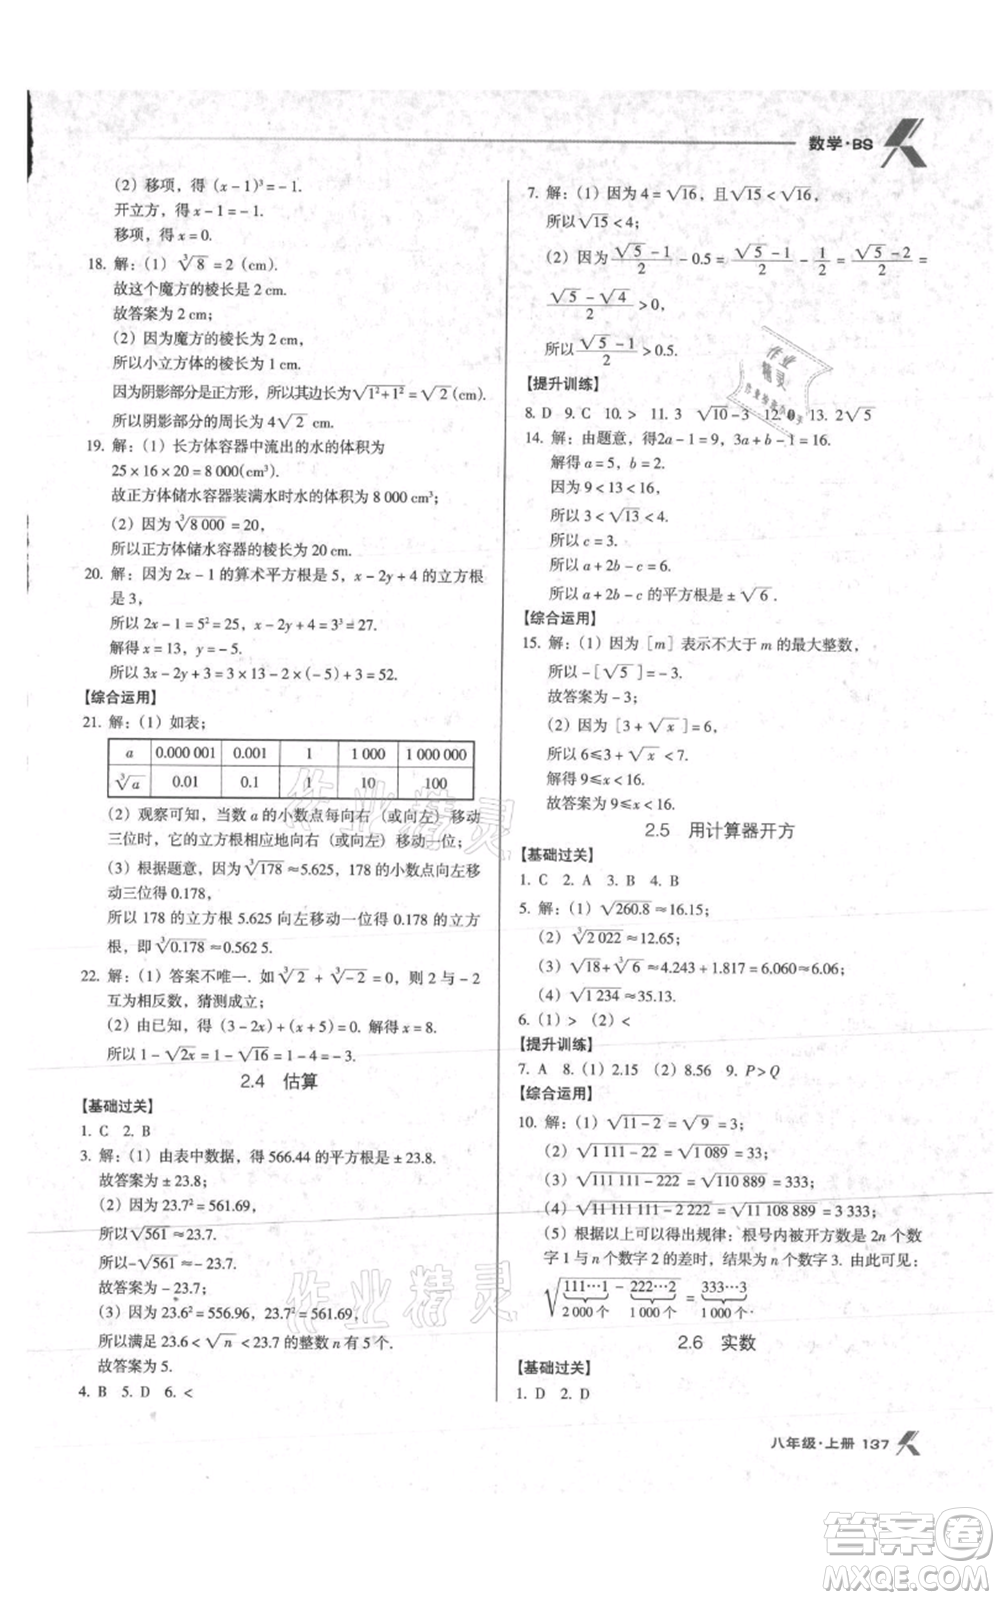 数学·BS
(2) 移项，得 (x－1)³＝－1.
开立方，得 x－1＝－1.
移项，得 x＝0.
18. 解：(1) ∛8＝2 (cm).
故这个魔方的棱长是 2 cm.
故答案为 2 cm；
(2) 因为魔方的棱长为 2 cm，
所以小立方体的棱长为 1 cm.
因为阴影部分是正方形，所以其边长为√(1²＋1²)＝√2 (cm).
所以阴影部分的周长为 4√2 cm.
19. 解：(1) 长方体容器中流出的水的体积为
25×16×20＝8 000(cm³).
故正方体储水容器装满水时水的体积为 8 000 cm³；
(2) 因为∛8 000＝20，
所以正方体储水容器的棱长为 20 cm.
20. 解：因为 2x－1 的算术平方根是 5，x－2y＋4 的立方根
是 3，
所以 2x－1＝5²＝25，x－2y＋4＝3³＝27.
解得 x＝13，y＝－5.
所以 3x－2y＋3＝3×13－2×(－5)＋3＝52.
【综合运用】
21. 解：(1) 如表；
a 0.000 001 0.001 1 1 000 1 000 000
∛a 0.01 0.1 1 10 100
(2) 观察可知，当数 a 的小数点每向右（或向左）移动
三位时，它的立方根相应地向右（或向左）移动一位；
(3) 根据题意，∛178≈5.625，178 的小数点向左移
动三位得 0.178，
所以 178 的立方根 5.625 向左移动一位得 0.178 的立方
根，即∛0.178≈0.562 5.
22. 解：(1) 答案不唯一. 如∛2＋∛－2＝0，则 2 与－2
互为相反数，猜测成立；
(2) 由已知，得 (3－2x)＋(x＋5)＝0. 解得 x＝8.
所以 1－√2x＝1－√16＝1－4＝－3.
2.4 估算
【基础过关】
1. C 2. B
3. 解：(1) 由表中数据，得 566.44 的平方根是±23.8.
故答案为±23.8；
(2) 因为 23.7²＝561.69，
所以√561≈23.7.
所以－√561≈－23.7.
故答案为－23.7；
(3) 因为 23.6²＝556.96，23.7²＝561.69，
所以满足 23.6＜√n＜23.7 的整数 n 有 5 个.
故答案为 5.
4. B 5. D 6. ＜
7. 解：(1) 因为 4＝√16，且√15＜√16，
所以√15＜4；
(2) 因为 (√5－1)/2－0.5＝(√5－1)/2－1/2＝(√5－2)/2＝
(√5－√4)/2＞0，
所以(√5－1)/2＞0.5.
【提升训练】
8. D 9. C 10. ＞ 11. 3 √10－3 12. 0 13. 2√5
14. 解：由题意，得2a－1＝9，3a＋b－1＝16.
解得 a＝5，b＝2.
因为 9＜13＜16，
所以 3＜√13＜4.
所以 c＝3.
所以 a＋2b－c＝6.
所以 a＋2b－c 的平方根是±√6.
【综合运用】
15. 解：(1) 因为［m］表示不大于 m 的最大整数，
所以－[√5]＝－3；
故答案为－3；
(2) 因为 [3＋√x]＝6，
所以 6≤3＋√x＜7.
解得 9≤x＜16.
故答案为 9≤x＜16.
2.5 用计算器开方
【基础过关】
1. C 2. A 3. B 4. B
5. 解：(1) √260.8≈16.15；
(2) ∛2 022≈12.65；
(3) √18＋∛6≈4.243＋1.817＝6.060≈6.06.
(4) √1 234≈35.13.
6. (1) ＞ (2) ＜
【提升训练】
7. A 8. (1) 2.15 (2) 8.56 9. P＞Q
【综合运用】
10. 解：(1) √(11－2)＝√9＝3；
(2) √(1 111－22)＝√1 089＝33；
(3) √(111 111－222)＝√110 889＝333；
(4) √(11 111 111－2 222)＝3 333；
(5) 根据以上可以得出规律：根号内被开方数是 2n 个数
字 1 与 n 个数字 2 的差时，结果为 n 个数字 3. 由此可见：
√(111…1－222…2)＝333…3
2 000 个 1 000 个 1 000 个.
2.6 实数
【基础过关】
1. D 2. D
八年级·上册 137
作业精灵
作业精灵
作业
精灵
答案卷
MXQE.COM